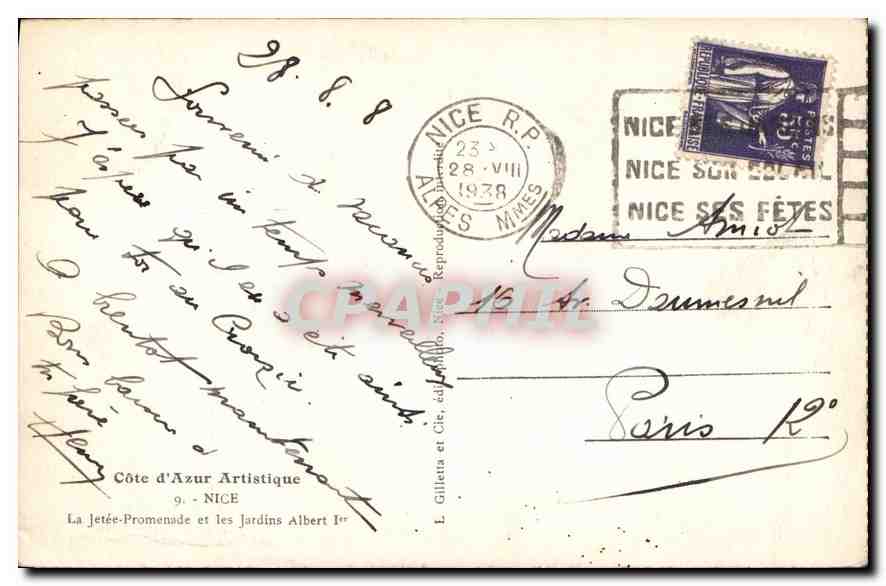 28.8.8
Souvenir de vacances
passées par un temps merveilleux
J'espère qu'il en a été ainsi
pour toi au Croizic.
A bientôt maintenant
Bons baisers de
ton frère
Henry
Côte d'Azur Artistique
9. - NICE
La Jetée-Promenade et les Jardins Albert Ier
L. Gilletta et Cie, édit. photo, Nice - Reproduction interdite
NICE R.P.
23
28 · VIII
1938
ALPES MMES
NICE
NICE SON SOLEIL
NICE SES FÊTES
REPUBLIQUE FRANÇAISE
POSTES
Madame Amiot
16 Av. Daumesnil
Paris 12°
CPAPHIL